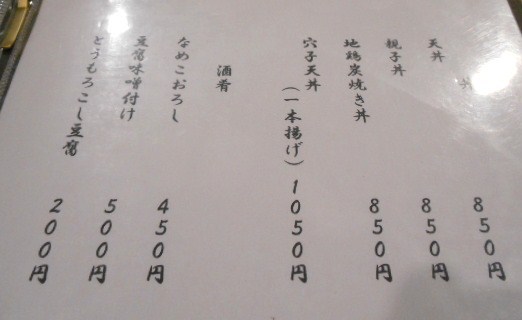 丼 850円
天丼 850円
親子丼 850円
地鶏炭焼き丼 850円
穴子天丼(一本揚げ)1050円
酒肴
なめこおろし 450円
豆腐味噌付け 500円
とうもろこし豆腐 200円